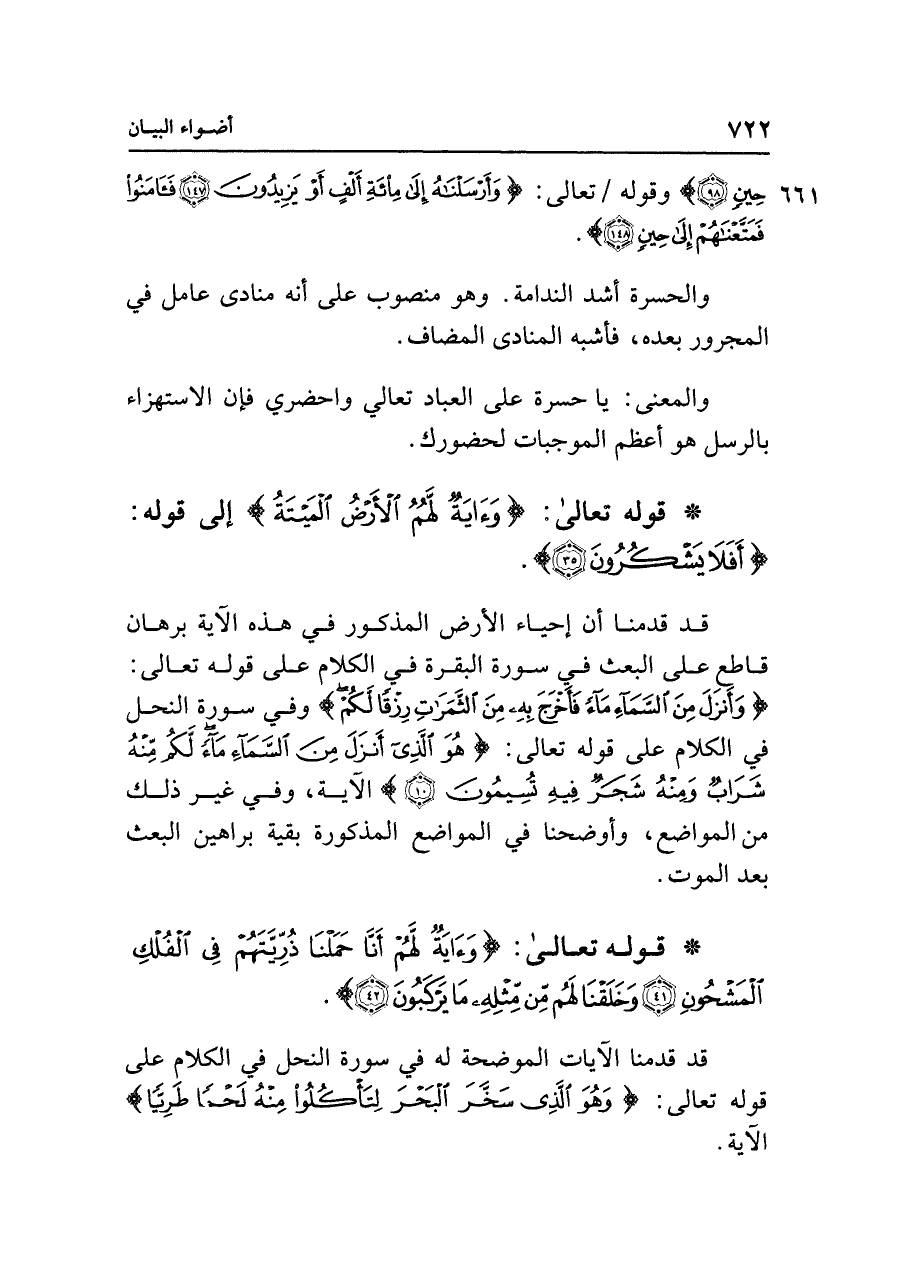 ٧٢٢ أضواء البيان
٦٦١ حِينٍ ﴿٩٨﴾﴾ وقوله / تعالى: ﴿وَأَرْسَلْنَٰهُ إِلَىٰ مِاْئَةِ أَلْفٍ أَوْ يَزِيدُونَ ﴿١٤٧﴾ فَـَٔامَنُوا۟
فَمَتَّعْنَٰهُمْ إِلَىٰ حِينٍ ﴿١٤٨﴾﴾.
والحسرة أشد الندامة. وهو منصوب على أنه منادى عامل في
المجرور بعده، فأشبه المنادى المضاف.
والمعنى: يا حسرة على العباد تعالي واحضري فإن الاستهزاء
بالرسل هو أعظم الموجبات لحضورك.
* قوله تعالىٰ: ﴿وَءَايَةٌ لَّهُمُ ٱلْأَرْضُ ٱلْمَيْتَةُ﴾ إلى قوله:
﴿أَفَلَا يَشْكُرُونَ ﴿٣٥﴾﴾.
قد قدمنا أن إحياء الأرض المذكور في هذه الآية برهان
قاطع على البعث في سورة البقرة في الكلام على قوله تعالى:
﴿وَأَنزَلَ مِنَ ٱلسَّمَآءِ مَآءً فَأَخْرَجَ بِهِۦ مِنَ ٱلثَّمَرَٰتِ رِزْقًا لَّكُمْ ۖ﴾ وفي سورة النحل
في الكلام على قوله تعالى: ﴿هُوَ ٱلَّذِىٓ أَنزَلَ مِنَ ٱلسَّمَآءِ مَآءً ۖ لَّكُم مِّنْهُ
شَرَابٌ وَمِنْهُ شَجَرٌ فِيهِ تُسِيمُونَ ﴿١٠﴾﴾ الآية، وفي غير ذلك
من المواضع، وأوضحنا في المواضع المذكورة بقية براهين البعث
بعد الموت.
* قوله تعالىٰ: ﴿وَءَايَةٌ لَّهُمْ أَنَّا حَمَلْنَا ذُرِّيَّتَهُمْ فِى ٱلْفُلْكِ
ٱلْمَشْحُونِ ﴿٤١﴾ وَخَلَقْنَا لَهُم مِّن مِّثْلِهِۦ مَا يَرْكَبُونَ ﴿٤٢﴾﴾.
قد قدمنا الآيات الموضحة له في سورة النحل في الكلام على
قوله تعالى: ﴿وَهُوَ ٱلَّذِى سَخَّرَ ٱلْبَحْرَ لِتَأْكُلُوا۟ مِنْهُ لَحْمًا طَرِيًّا﴾
الآية.